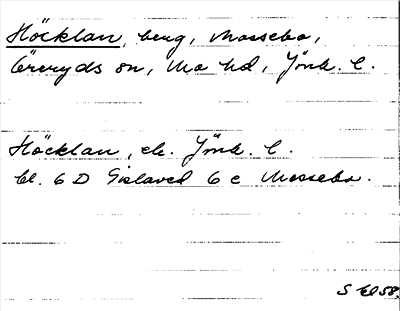 Höcklan, berg, Mossebo,
Öreryds sn, Mo hd, Jönk. l.
Höcklan, ek. Jönk. l.
bl. 6 D Gislaved 6 c Mossebo.
S EB 58.